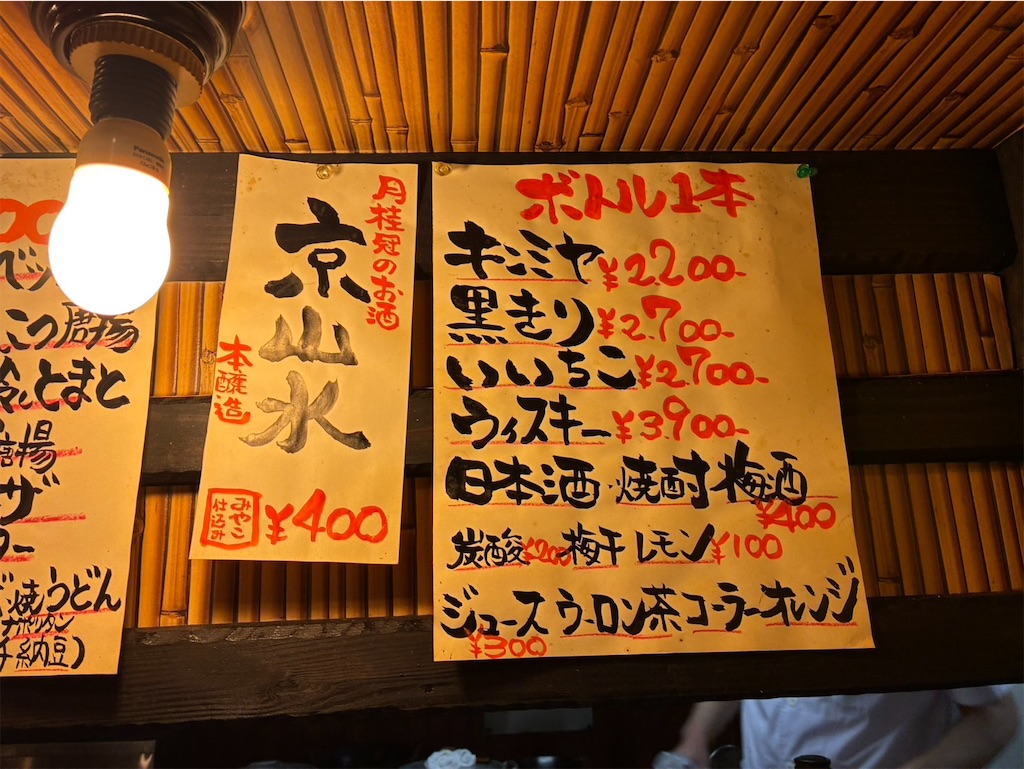 Panasonic
べッ
こつ唐揚
冷しとまと
唐揚
ザ
ター
焼うどん
ナポリタン
納豆)
月桂冠のお酒
京山水
本醸造
みやこ
仕込み
¥400
ボトル1本
キンミヤ ¥2.200-
黒きり ¥2.700-
いいちこ ¥2.700-
ウィスキー ¥3.900-
日本酒・焼酎 梅酒
¥400
炭酸¥200 梅干 レモン ¥100
ジュース ウーロン茶 コーラー オレンジ
¥300